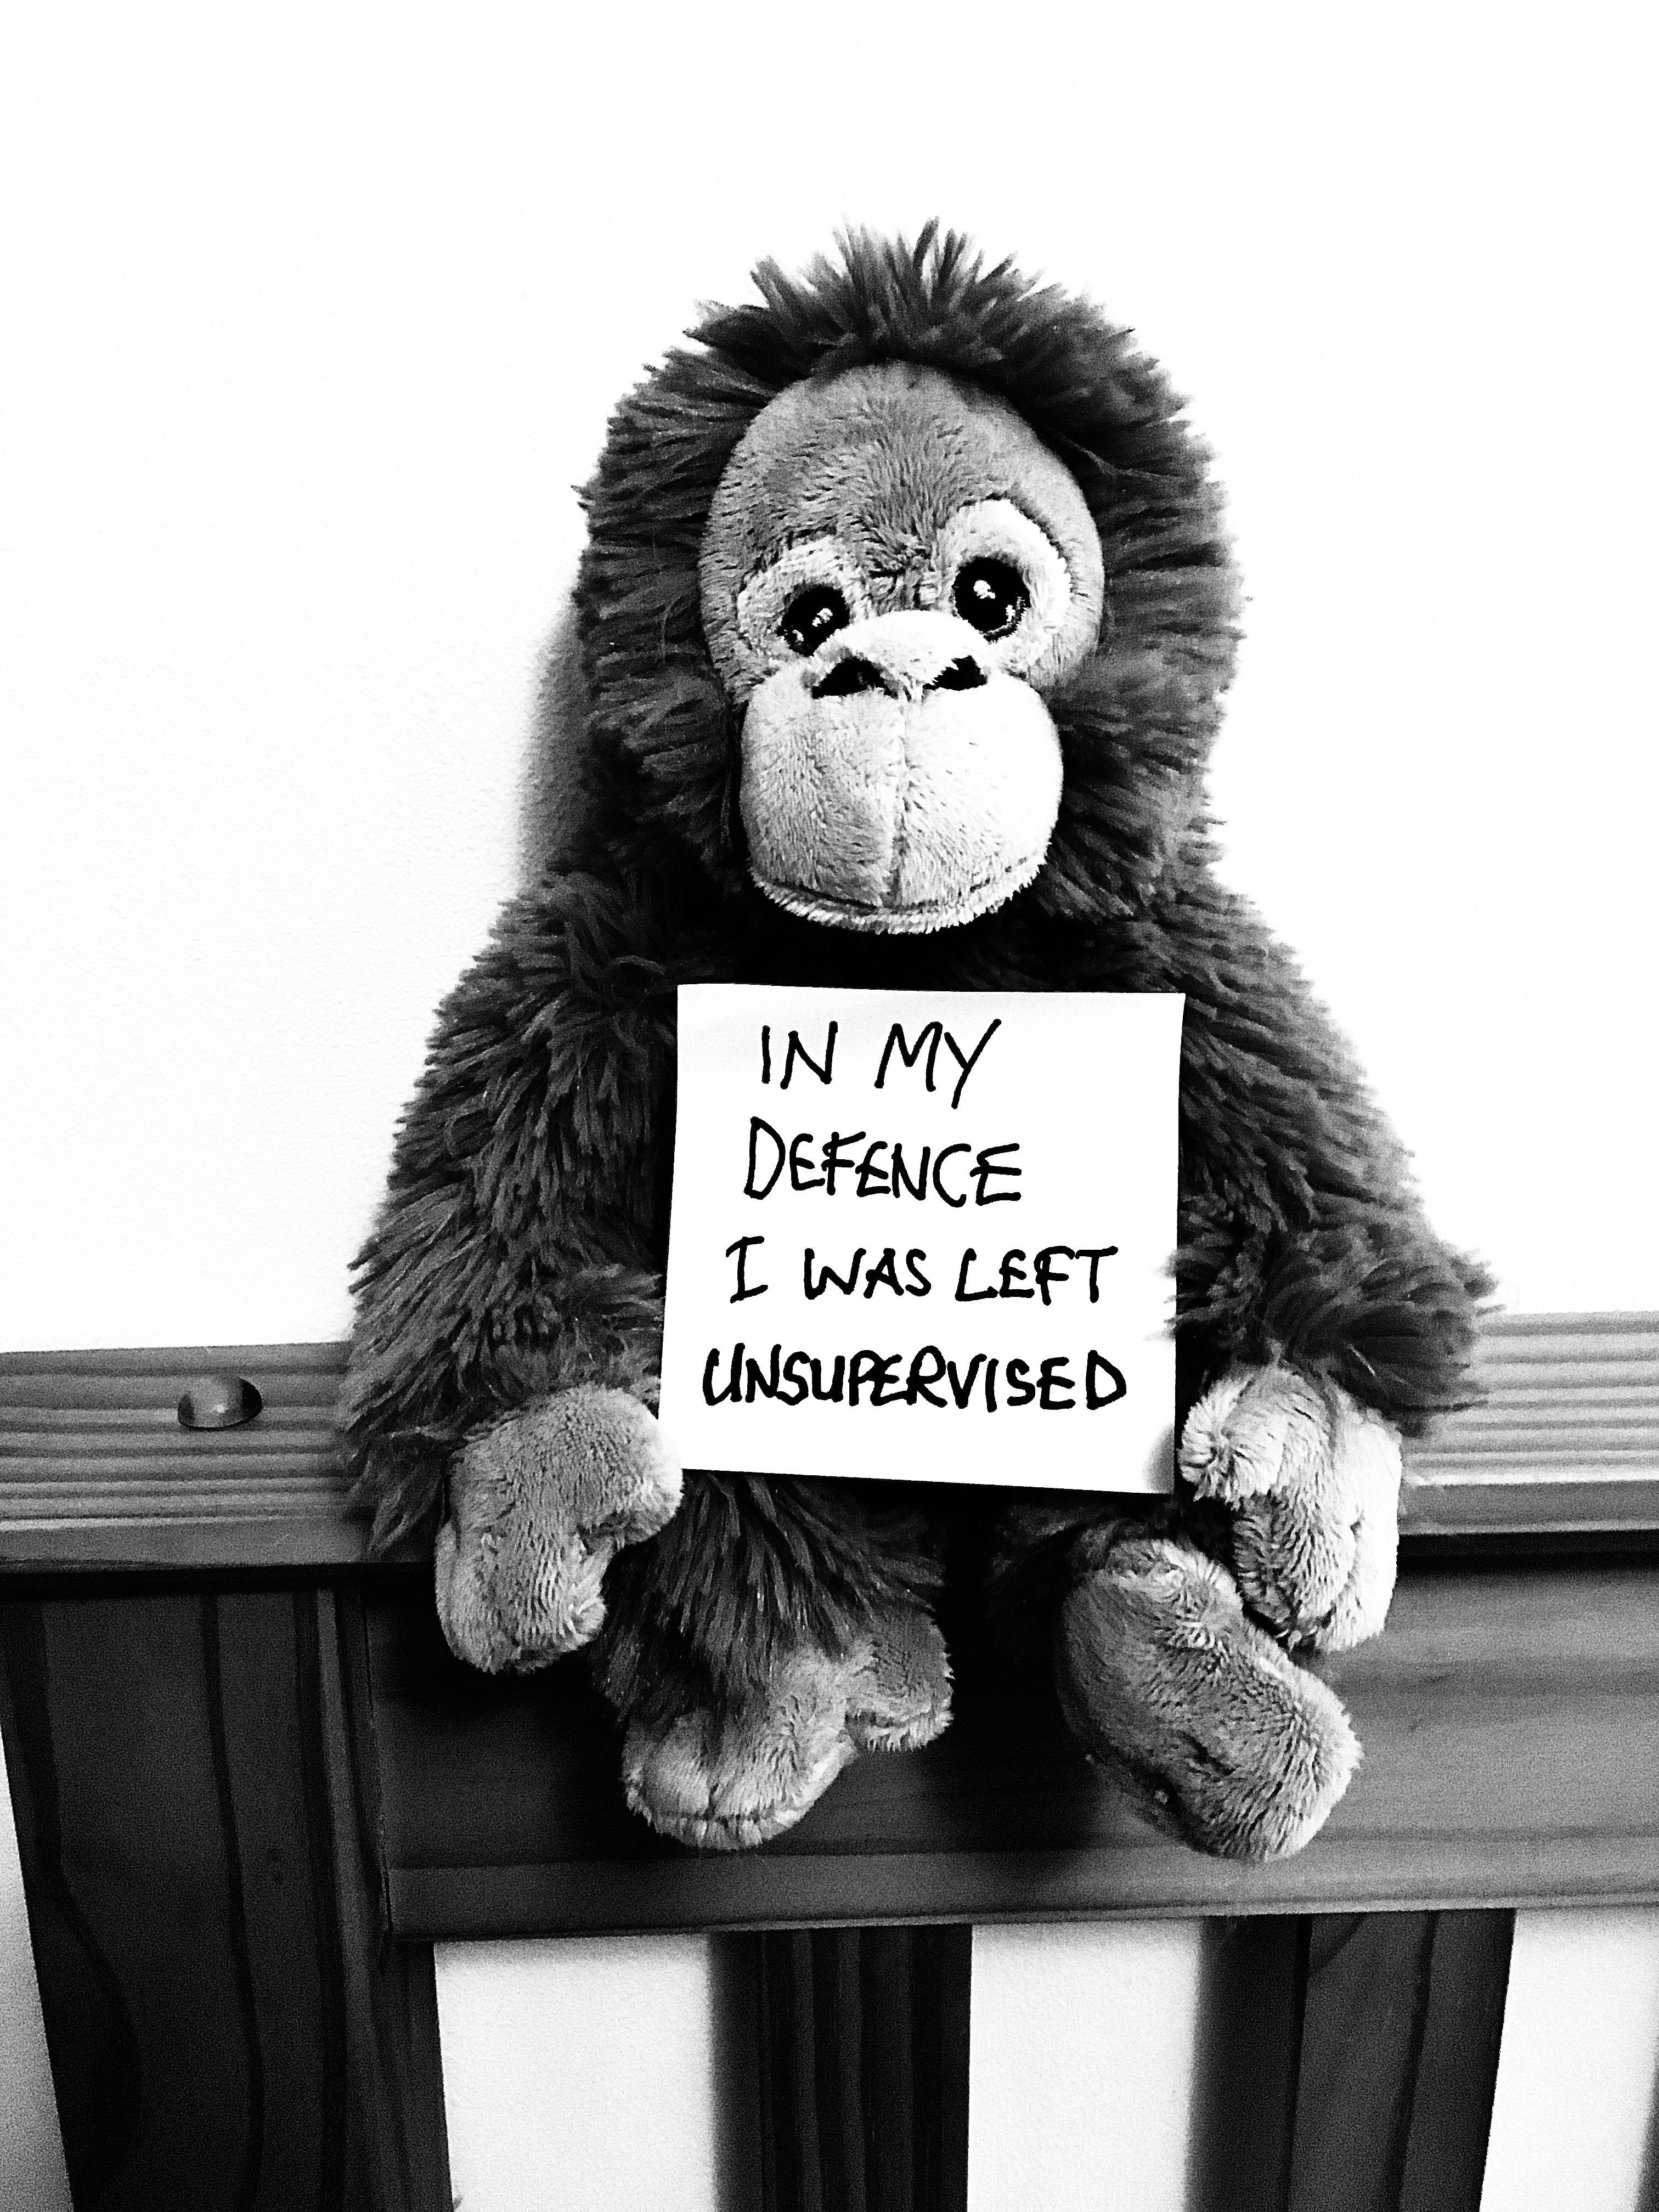 IN MY
DEFENCE
I WAS LEFT
UNSUPERVISED